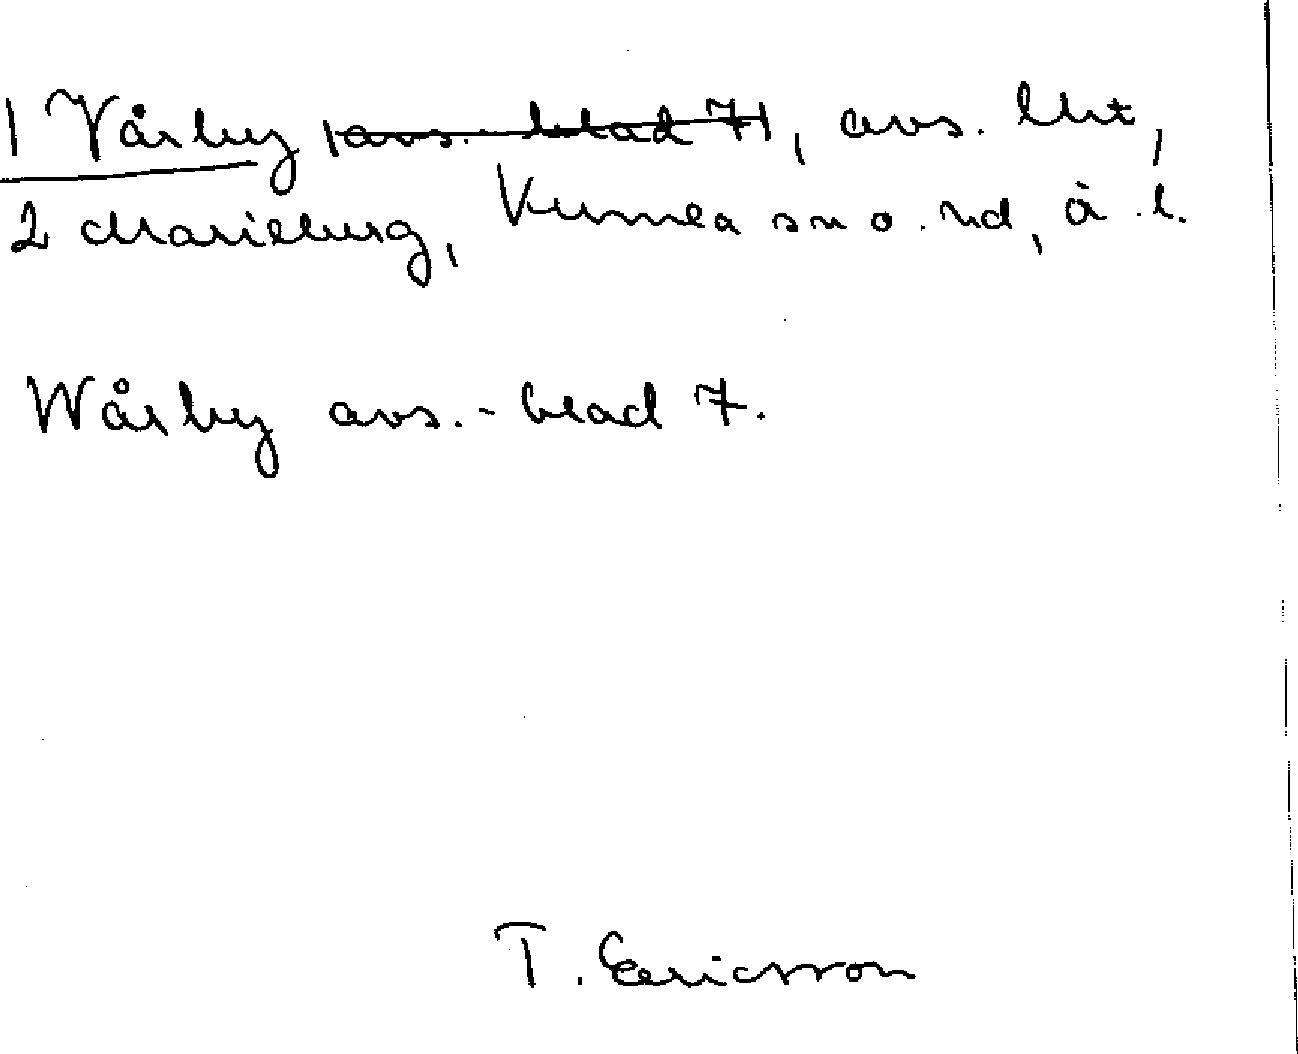 1 Vårby ~~avs.-blad 7~~, avs. lht,
2 Marieburg, Kumla sn o. hd, ä. l.
Wårby avs.-blad 7.
T. Ericsson